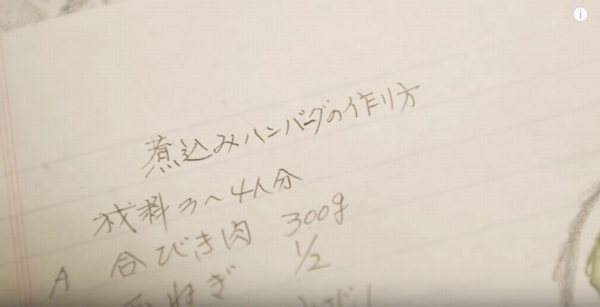 煮込みハンバーグの作り方
材料3〜4人分
A 合びき肉 300g
ねぎ 1/2